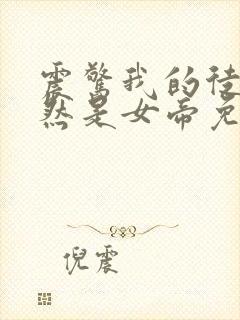 震惊我的徒
然是女帝免
倪震